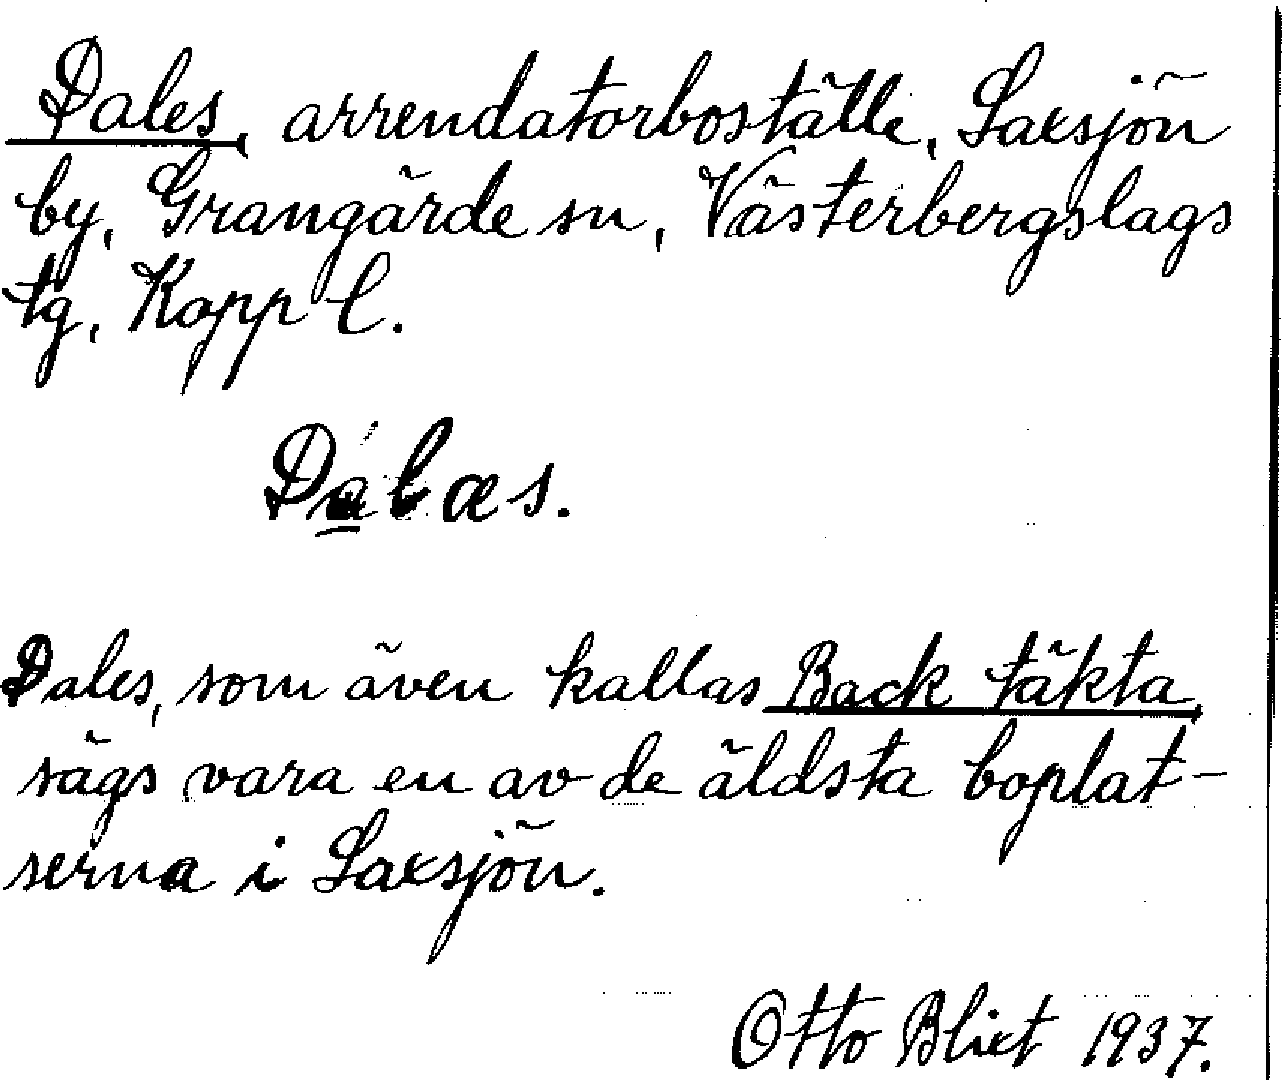 Dales, arrendatorboställe, Saxsjön
by, Grangärde sn, Västerbergslags
tg, Kopp l.
Dálæs.
Dales, som även kallas Back täkta,
sägs vara en av de äldsta boplat-
serna i Saxsjön.
Otto Blixt 1937.